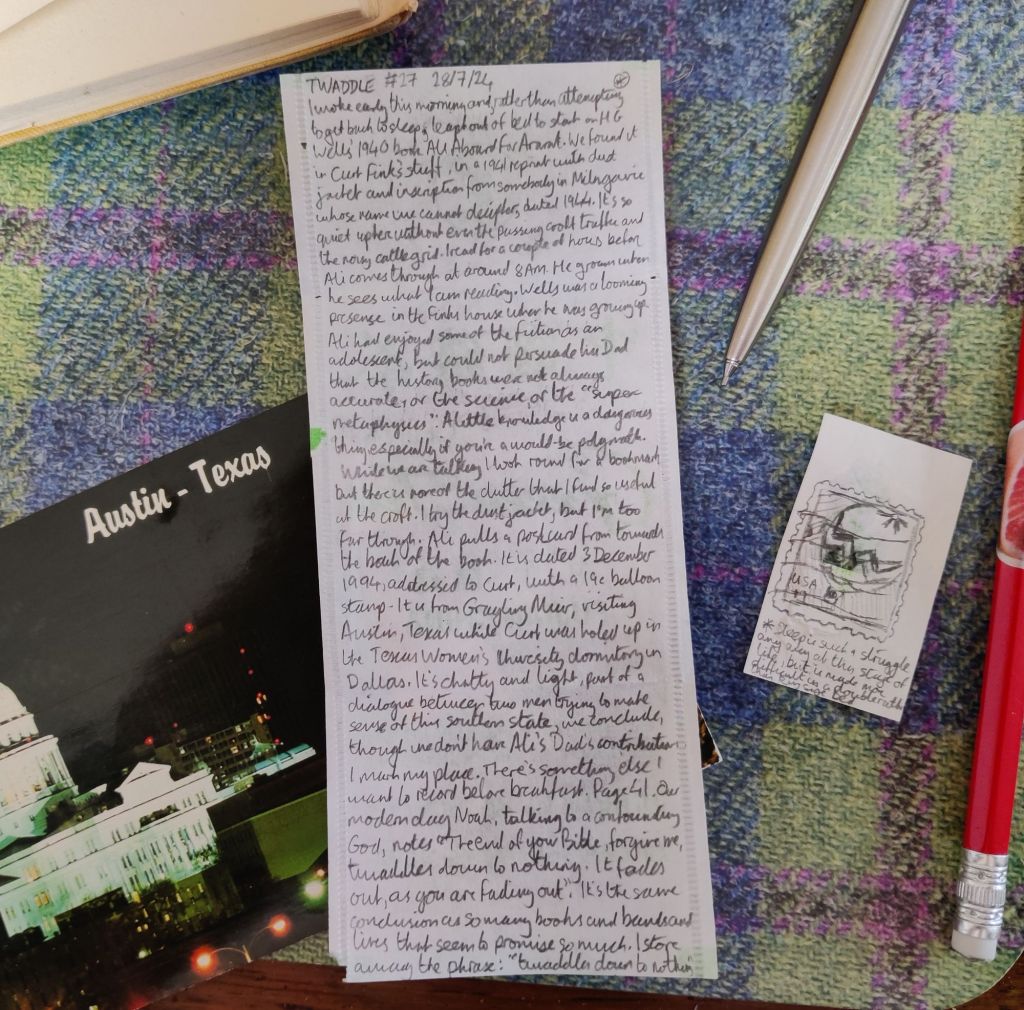 TWADDLE #27 28/7/24
I woke early this morning and, rather than attempting
to get back to sleep*, leapt out of bed to start on HG
Wells' 1940 book 'All Aboard for Ararat'. We found it
in Curt Fink's stuff, in a 1941 reprint with dust
jacket and inscription from somebody in Milngavie
whose name we cannot decipher, dated 1944. It's so
quiet up here without even the passing croft traffic and
the noisy cattlegrid. I read for a couple of hours before
Ali comes through at around 8AM. He groans when
he sees what I am reading. Wells was a looming
presence in the Finks house when he was growing up.
Ali had enjoyed some of the fiction as an
adolescent, but could not persuade his Dad
that the history books were not always
accurate, or the science, or the "super
metaphysics". A little knowledge is a dangerous
thing, especially if you're a would-be polymath.
While we are talking I look round for a bookmark
but there is none of the clutter that I find so useful
at the croft. I try the dust jacket, but I'm too
far through. Ali pulls a postcard from towards
the back of the book. It is dated 3 December
1994, addressed to Curt, with a 19c balloon
stamp. It is from Grayling Muir, visiting
Austin, Texas while Curt was holed up in
the Texas Women's University dormitory in
Dallas. It's chatty and light, part of a
dialogue between two men trying to make
sense of this southern state, we conclude,
though we don't have Ali's Dad's contribution
I mark my place. There's something else I
want to record before breakfast. Page 41. Our
modern day Noah, talking to a confounding
God, notes "The end of your Bible, forgive me,
twaddles down to nothing. It fades
out, as you are fading out". It's the same
conclusion as so many books and bands and
lives that seem to promise so much. I store
away the phrase: "twaddles down to nothin
Austin - Texas
USA
* Sleep is such a struggle
any way at this stage of
life, but is made more
difficult in a